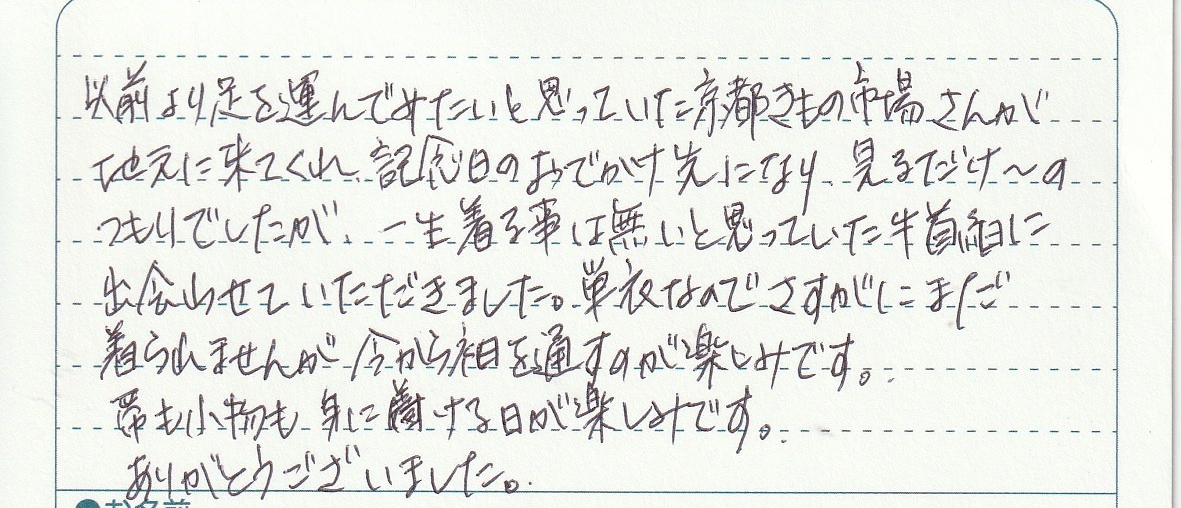 以前より足を運んでみたいと思っていた京都きもの市場さんが
地元に来てくれ、記念日のおでかけ先になり、見るだけ〜の
つもりでしたが、一生着る事は無いと思っていた牛首紬に
出会わせていただきました。単衣なのでさすがにまだ
着られませんが今から袖を通すのが楽しみです。
帯も小物も身に着ける日が楽しみです。
ありがとうございました。
お名前